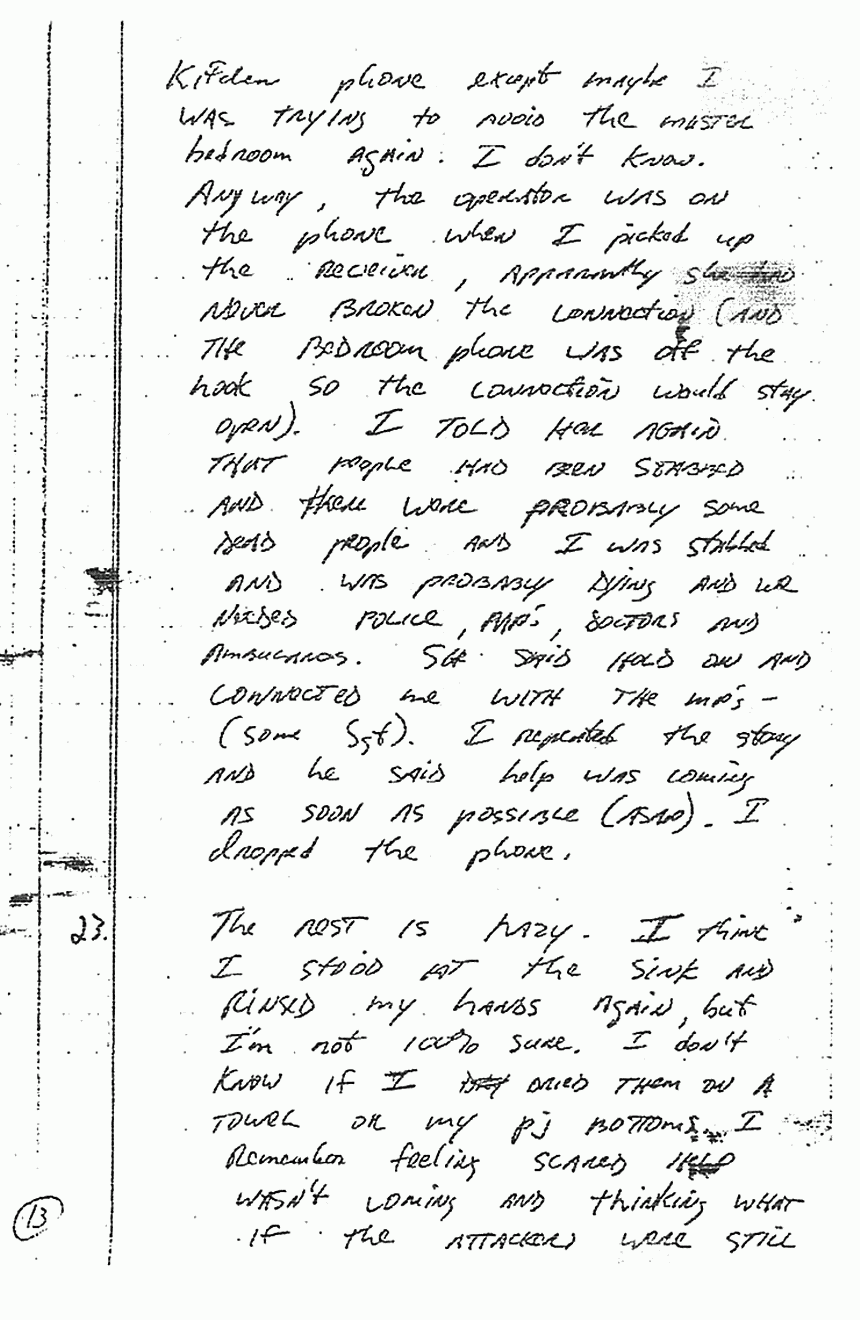 Kitchen phone except maybe I
WAS TRYING to AVOID the MASTER
bedroom AGAIN. I don't KNOW.
ANYWAY, the operator WAS ON
the phone when I picked up
the Receiver, Apparently she had
NEVER BROKEN the CONNECTION (AND
THE BEDROOM phone WAS off the
hook SO the CONNECTION would stay
open). I TOLD HER AGAIN
THAT people HAD BEEN STABBED
AND there were PROBABLY some
DEAD people AND I WAS stabbed
AND WAS PROBABLY DYING AND WE
NEEDED POLICE, MP's, DOCTORS AND
AMBULANCES. SHE SAID HOLD ON AND
CONNECTED me WITH THE MP's -
(some Sgt). I repeated the story
AND he SAID help WAS coming
AS SOON AS possible (ASAP). I
dropped the phone.
23. The REST IS hazy. I think
I STOOD AT the SINK AND
RINSED my hands AGAIN, but
I'm not 100% sure. I don't
KNOW IF I DRIED THEM ON A
TOWEL OR my pj BOTTOMS. I
Remember feeling SCARED HELP
WASN'T COMING AND thinking WHAT
IF the ATTACKERS were STILL
13